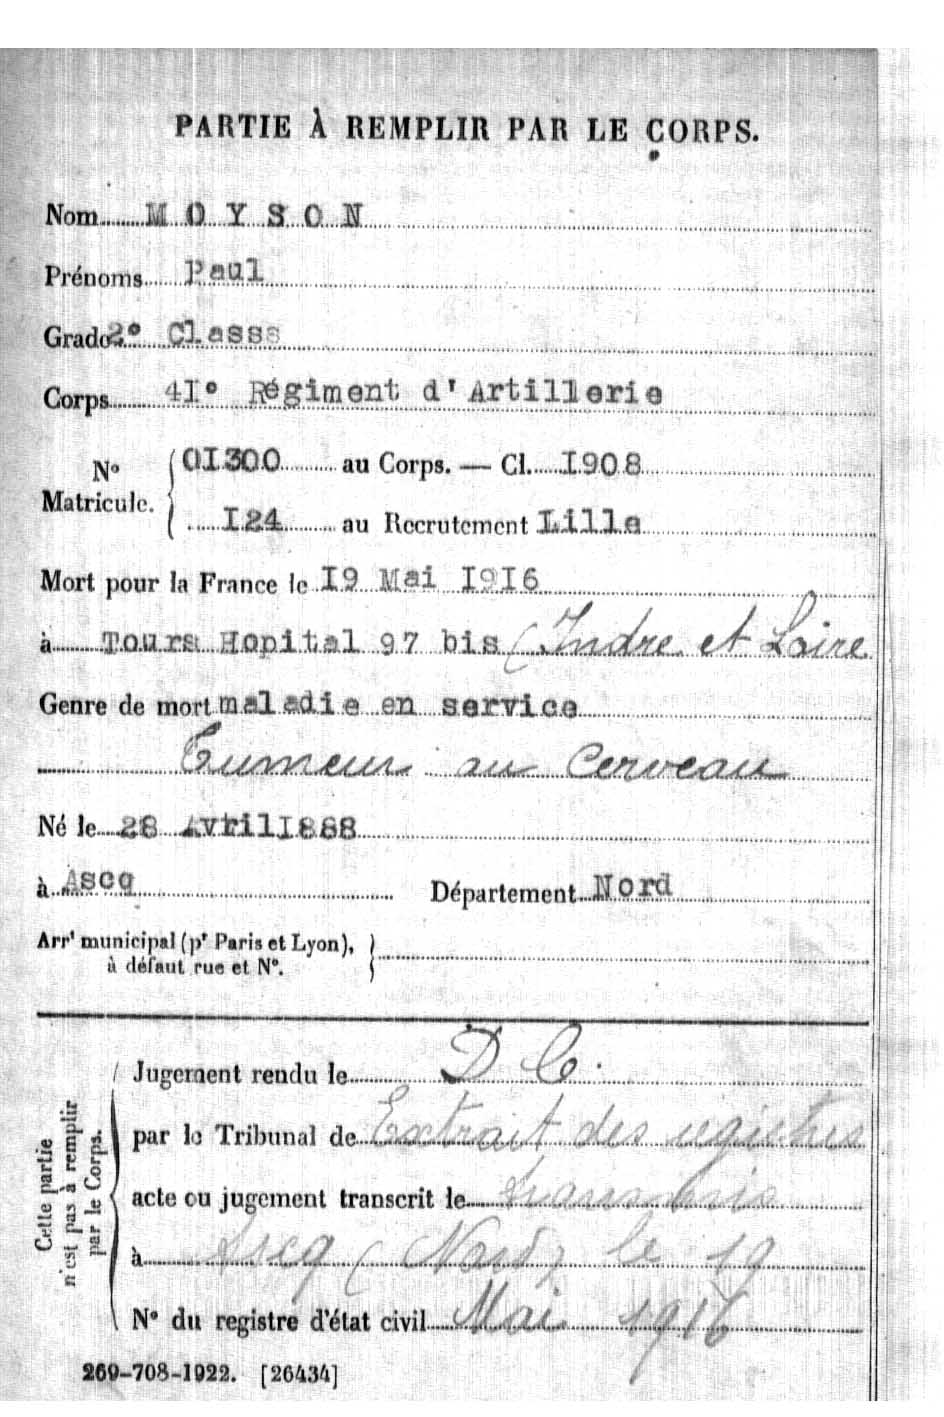 PARTIE À REMPLIR PAR LE CORPS.
Nom MOYSON
Prénoms Paul
Grade 2° Classs
Corps 4I° Régiment d'Artillerie
N° Matricule. { 0I300 au Corps. — Cl. I908
I24 au Recrutement Lille
Mort pour la France le I9 Mai I9I6
à Tours Hopital 97 bis (Indre et Loire
Genre de mort maladie en service
Tumeur au Cerveau
Né le 28 AvrilI888
à Ascq Département Nord
Arrt municipal (pr Paris et Lyon),
à défaut rue et N°.
Cette partie n'est pas à remplir par le Corps.
Jugement rendu le D C.
par le Tribunal de Extrait des registres
acte ou jugement transcrit le transmis
à Ascq (Nord) le 19
N° du registre d'état civil Mai 1916
269-708-1922. [26434]